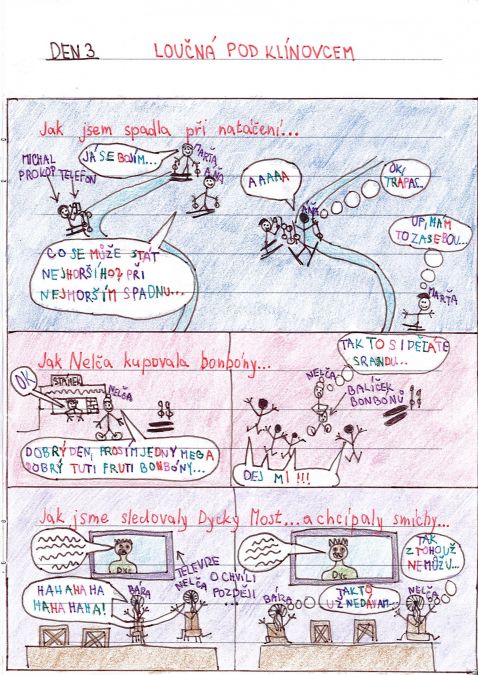 DEN 3
LOUČNÁ POD KLÍNOVCEM
Jak jsem spadla při natáčení...
MICHAL
PROKOP
TELEFON
JÁ SE BOJÍM...
MARŤA
ÁŇA
CO SE MŮŽE STÁT
NEJHORŠÍHO? PŘI
NEJHORŠÍM SPADNU...
AAAAA
ÁŇA
OK!
TRAPAS..
UF, MÁM
TO ZA SEBOU...
MARŤA
Jak Nelča kupovala bonbóny...
OK
STÁNEK
NELČA
DOBRÝ DEN, PROSIM JEDNY MEGA
DOBRÝ TUTI FRUTI BONBÓNY...
TAK TO SI DĚLÁTE
SRANDU...
NELČA
BALÍČEK
BONBONŮ
DEJ MI!!!
Jak jsme sledovaly Dycky Most...a chcípaly smíchy...
DYC
TELEVIZE
HAHAHAHA
HAHAHAHA!
BÁRA
NELČA
O CHVÍLI
POZDĚJI
DYC
TAK
Z TOHO UŽ
NEMŮŽU...
BÁRA
TAK TO
UŽ NEDÁVÁM...
NELČA